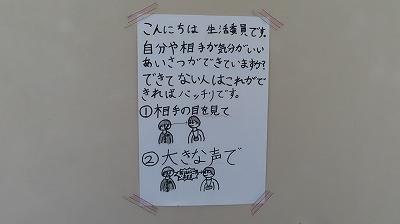 こんにちは 生活委員です。
自分や相手が気分がいい
あいさつができていますか?
できてない人はこれがで
きればバッチリです。
①相手の目を見て
②大きな声で